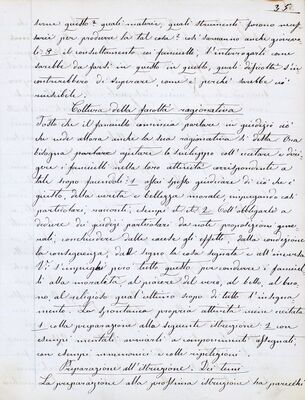 35
come questo? quali materie, quali strumenti furono neces
sarii per produrre la tal cosa? così saranno anche giovare
li: 3 il consultamento coi fanciulli, l'interrogarli come
sarebbe da farsi in questo in quello, quali difficoltà s'in
contrerebbero di superare come e perchè sarebbe ciò
inutile.
Coltura della facoltà ragionativa
Tosto che il fanciullo comincia parlare in giudizii ciò
che vede allora anche la sua ragionativa si desta. Ora
bisogna parlare ajutare lo sviluppo coll'eccitare e diri
gere i fanciulli nella loro attività corrispondente a
tale scopo facendoli: 1 assai spesso giudicare di ciò che è
giusto, della verità e bellezza morale, impiegando casi
particolari, racconti, esempi ecc. 2 Coll'obbligarli a
dedurre dei giudizi particolari da note proposizioni gene
rali, conchiudere dalle cause gli effetti, dalla condizione
la conseguenza, dal segno la cosa segnata e all'inversa
V'impieghi però tutto questo per condurre i fanciul
li alla moralità, al piacere del vero, al bello, al buo
no, al religioso qual ultimo scopo di tutto l'insegna
mento. La spontanea propria attività viene eccitata
1 colla preparazione alla seguente istruzione: 2 con
esempi mentali avviarli a componimenti assegnati,
con esempi mnemonici e colle ripetizioni.
Preparazione all'istruzione. Dei temi
La preparazione alla prossima istruzione ha parecchi